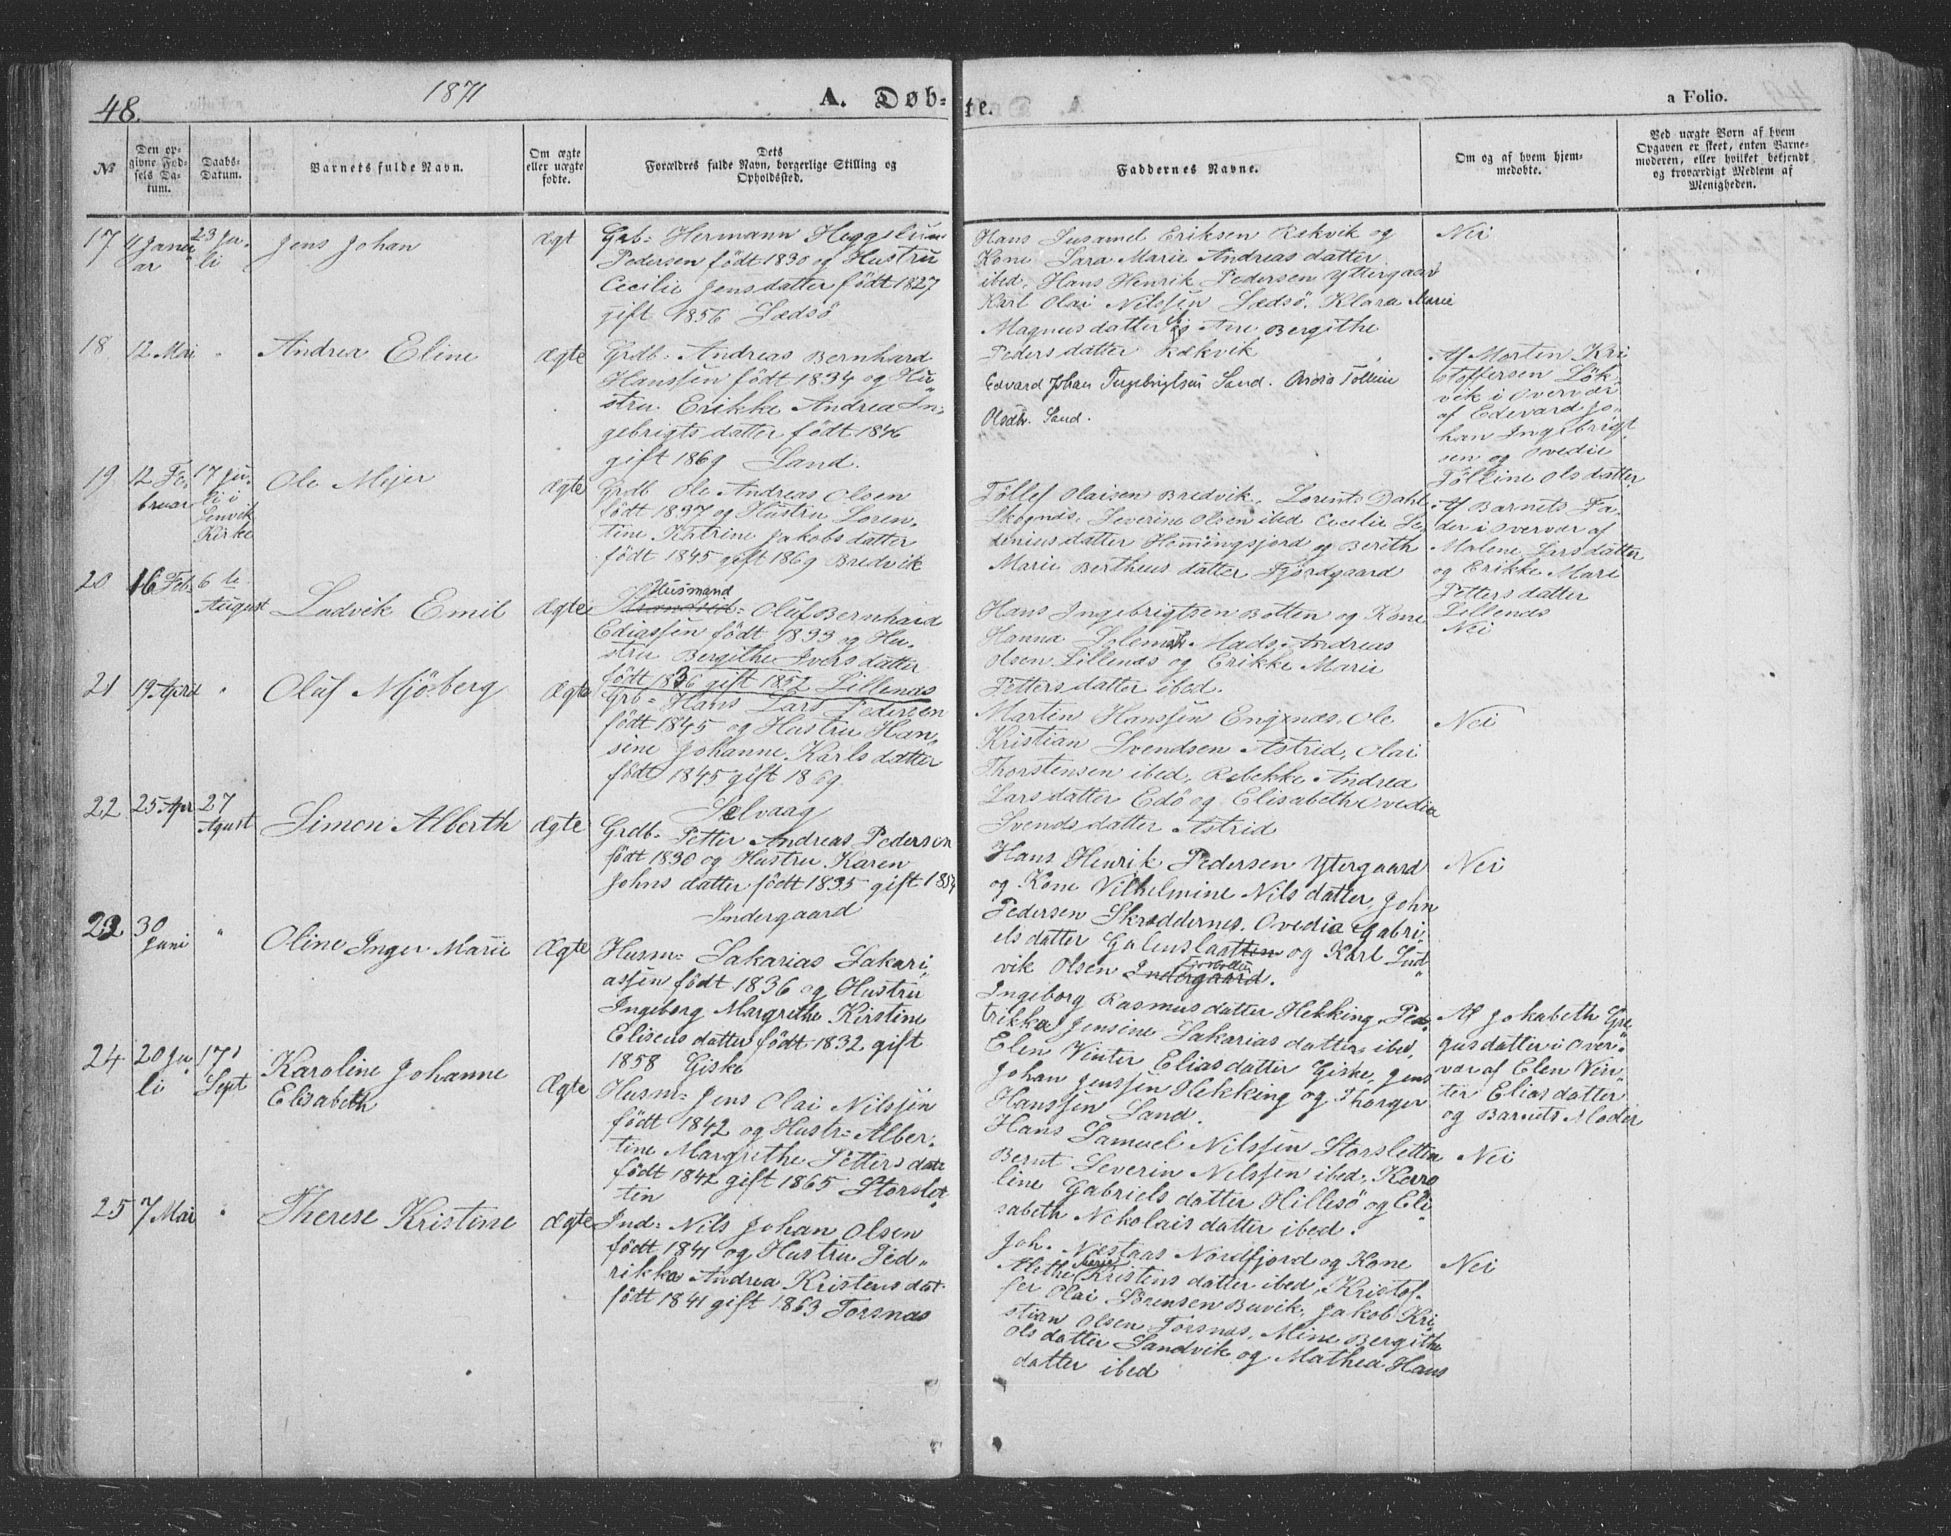 48.
1871
A. Døb-
te.
a Folio.
No
Den op-
givne Fød-
sels Da-
tum.
Daabs-
Datum.
Barnets fulde Navn.
Om ægte
eller uægte
fødte.
Dets
Forældres fulde Navn, borgerlige Stilling og
Opholdssted.
Faddernes Navne.
Om og af hvem hjem-
medøbte.
Ved uægte Børn af hvem
Opgaven er skeet, enten Barne-
moderen, eller hvilket bekjendt
og troværdigt Medlem af
Menigheden.
17
4 Janu
ar
23 Ju-
li
Jens Johan
Ægt
Grb= Hermann Heggelund
Pedersen født 1830 og Hustru
Cecilie Jensdatter født 1827
gift 1856 Lædsö
Hans Eriksen Rekvik og
Kone Sara Marie Andreas datter
ibed, Hans Henrik Pedersen Yttergaard
Karl Olai Nilssen Lædsö. Klara Marie
Magnusdatter og Ane Bergithe
Peders datter Rækvik
Nei
18
12 Mai
"
Andrea Eline
Ægte
Grdb= Andreas Bernhard
Hanssen født 1834 og Hu
stru Erikke Andrea In,
gebrigts datter født 1846
gift 1869 Sand.
Edvard Johan Ingebrigtsen Sand. Ovidia Tolline
Olsdtr. Sand.
Af Morten Kri
stoffersen Lök-
vik i Overvær
af Edevard Jo-
han Ingebrigt
sen og Ovedie
Tölline Olsdatter
19
12 Fe-
bruar
17 Ju-
li i
Lenvik
Kirke
Ole Mejer
Ægte
Grdb Ole Andreas Olsen
født 1837 og Hustru Loren-
tine Katrine Jakobs datter
født 1845 gift 1869 Bredvik
Töllef Olaisen Bredvik, Lorents Dahl
Skognæs, Severine Olsen ibed Cecilie Ze
denius datter Hemingsjord og Berith
Marie Bertheus datter Fjordgaard
Af Barnets Fa-
der i Overvær af
Malene Lars datter
og Erikke Mari
Petters datter
Lillenæs
20
16 Feb-
6 te
August
Ludvik Emil
Ægte
Husmand
Oluf Bernhard
Ediassen født 1833 og Hu-
stru Bergithe Ivers datter
født 1836 gift 1852 Lillenæs
Hans Ingebrigtsen Botten og Kone
Hanna Mads Andreas
Olsen Lillenæs og Erikke Marie
Petters datter ibed.
Nei
21
19 April
"
Oluf Mjösberg
Ægte
Grb= Hans Lars Pedersen
født 1845 og Hustru Han-
sine Johanne Karls datter
født 1845 gift 1869
Selvaag
Martin Hanssen Engenæs. Ole
Kristian Svendsen Astrid, Olai
Thorstensen ibed, Rebekke Andrea
Lars datter Edö og Elisabeth Ovedia
Svends datter Astrid
Nei
22
25 Apr
27
Agust
Simon Alberth
Ægte
Grdb- Petter Andreas Pedersen
født 1830 og Hustru Karen
Johns datter født 1835 gift 1854
Indergaard
Hans Henrik Pedersen Ytergaard
og Kone Vilhelmine Nils datter, John
Pedersen Skræddernes. Ovedia Gabri-
els datter og Karl Lud
vik Olsen Indergaard.
Nei
23
30
Juni
"
Oline Inger Marie
Ægte
Husm= Sakarias Sakari-
assen født 1836 og Hustru
Ingeborg Margrethe Kirstine
Eliseus datter født 1832 gift
1858 Giske
Ingeborg Rasmus datter Hekking, Ped-
rikka Jensine Sakarias datter ibed,
Elen Vinter Elias datter Giske, Jens
Johan Jenssen Hekking og Thorger
Hanssen Sand.
Af Jokabeth Gre
gus datter i Over-
vær af Elen Vin-
ter Elias datter
og Barnets Moder
24
20 Ju-
li
17
Sept
Karoline Johanne
Elisabeth
Ægte
Husm= Jens Olai Nilssen
født 1842 og Hustr= Alber-
tine Margrethe Petters dat
født 1842 gift 1865 Storslet
tin
Hans Samuel Nilssen Storsletten
Bernt Severin Nilssen ibed, Karo
line Gabriels datter Hillesö og Eli
sabeth Nekolais datter ibed.
Nei
25
7 Mai
"
Therese Kristine
Ægte
Ind= Nils Johan Olsen
født 1841 og Hustru Ped-
rikka Andrea Kristens dat
født 1841 gift 1863 Torsnæs
Joh. Næstaas Nordfjord og Kone
Alethe Marie Kristens datter ibed, Kristof-
fer Olai Sörensen Buvik, Jakob Kri
stian Olsen Torsnæs, Mine Bergithe
Ols datter Sandvik og Mathea Hans
datter ibed
Nei